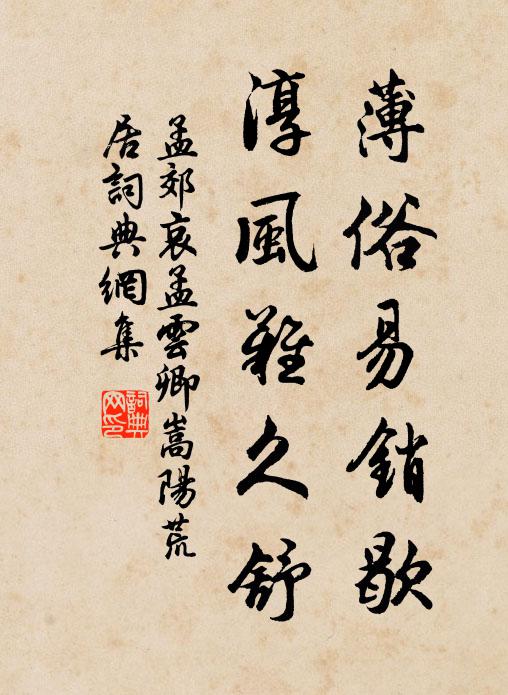 薄俗易銷歇
淳風難久舒
孟郊哀孟雲卿嵩陽荒
居詞典網集
詞典网印